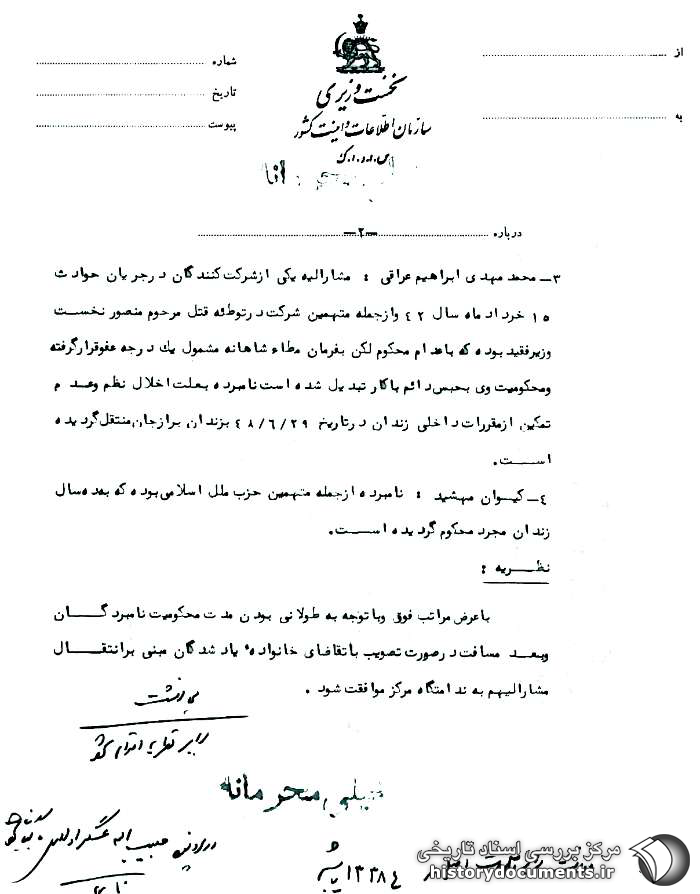 نخست وزیری
سازمان اطلاعات و امنیت کشور
س.ا.و.ا.ک
از
شماره
تاریخ
به
پیوست
درباره —۲—
۳- محمد مهدی ابراهیم عراقی : مشارالیه یکی از شرکت کنندگان در جریان حوادث
۱۵ خرداد ماه سال ۴۲ و از جمله متهمین شرکت در توطئه قتل مرحوم منصور نخست
وزیر فقید بوده که باعدام محکوم لکن بفرمان مطاع شاهانه مشمول یک درجه عفو قرار گرفته
و محکومیت وی بحبس دائم باکار تبدیل شده است نامبرده بعلت اخلال نظم و عدم
تمکین از مقررات داخلی زندان در تاریخ ۴۸/۶/۲۹ بزندان برازجان منتقل گردیده
است.
۴- کیوان مهشید : نامبرده از جمله متهمین حزب ملل اسلامی بوده که بده سال
زندان مجرد محکوم گردیده است.
نظریه :
با عرض مراتب فوق و با توجه به طولانی بودن مدت محکومیت نامبردگان
و بعد مسافت در صورت تصویب با تقاضای خانواده یاد شدگان مبنی بر انتقال
مشارالیهم به ندامتگاه مرکز موافقت شود .
خیلی محرمانه
حبیب اله عسگراولادی
مرکز بررسی اسناد تاریخی
historydocuments.ir